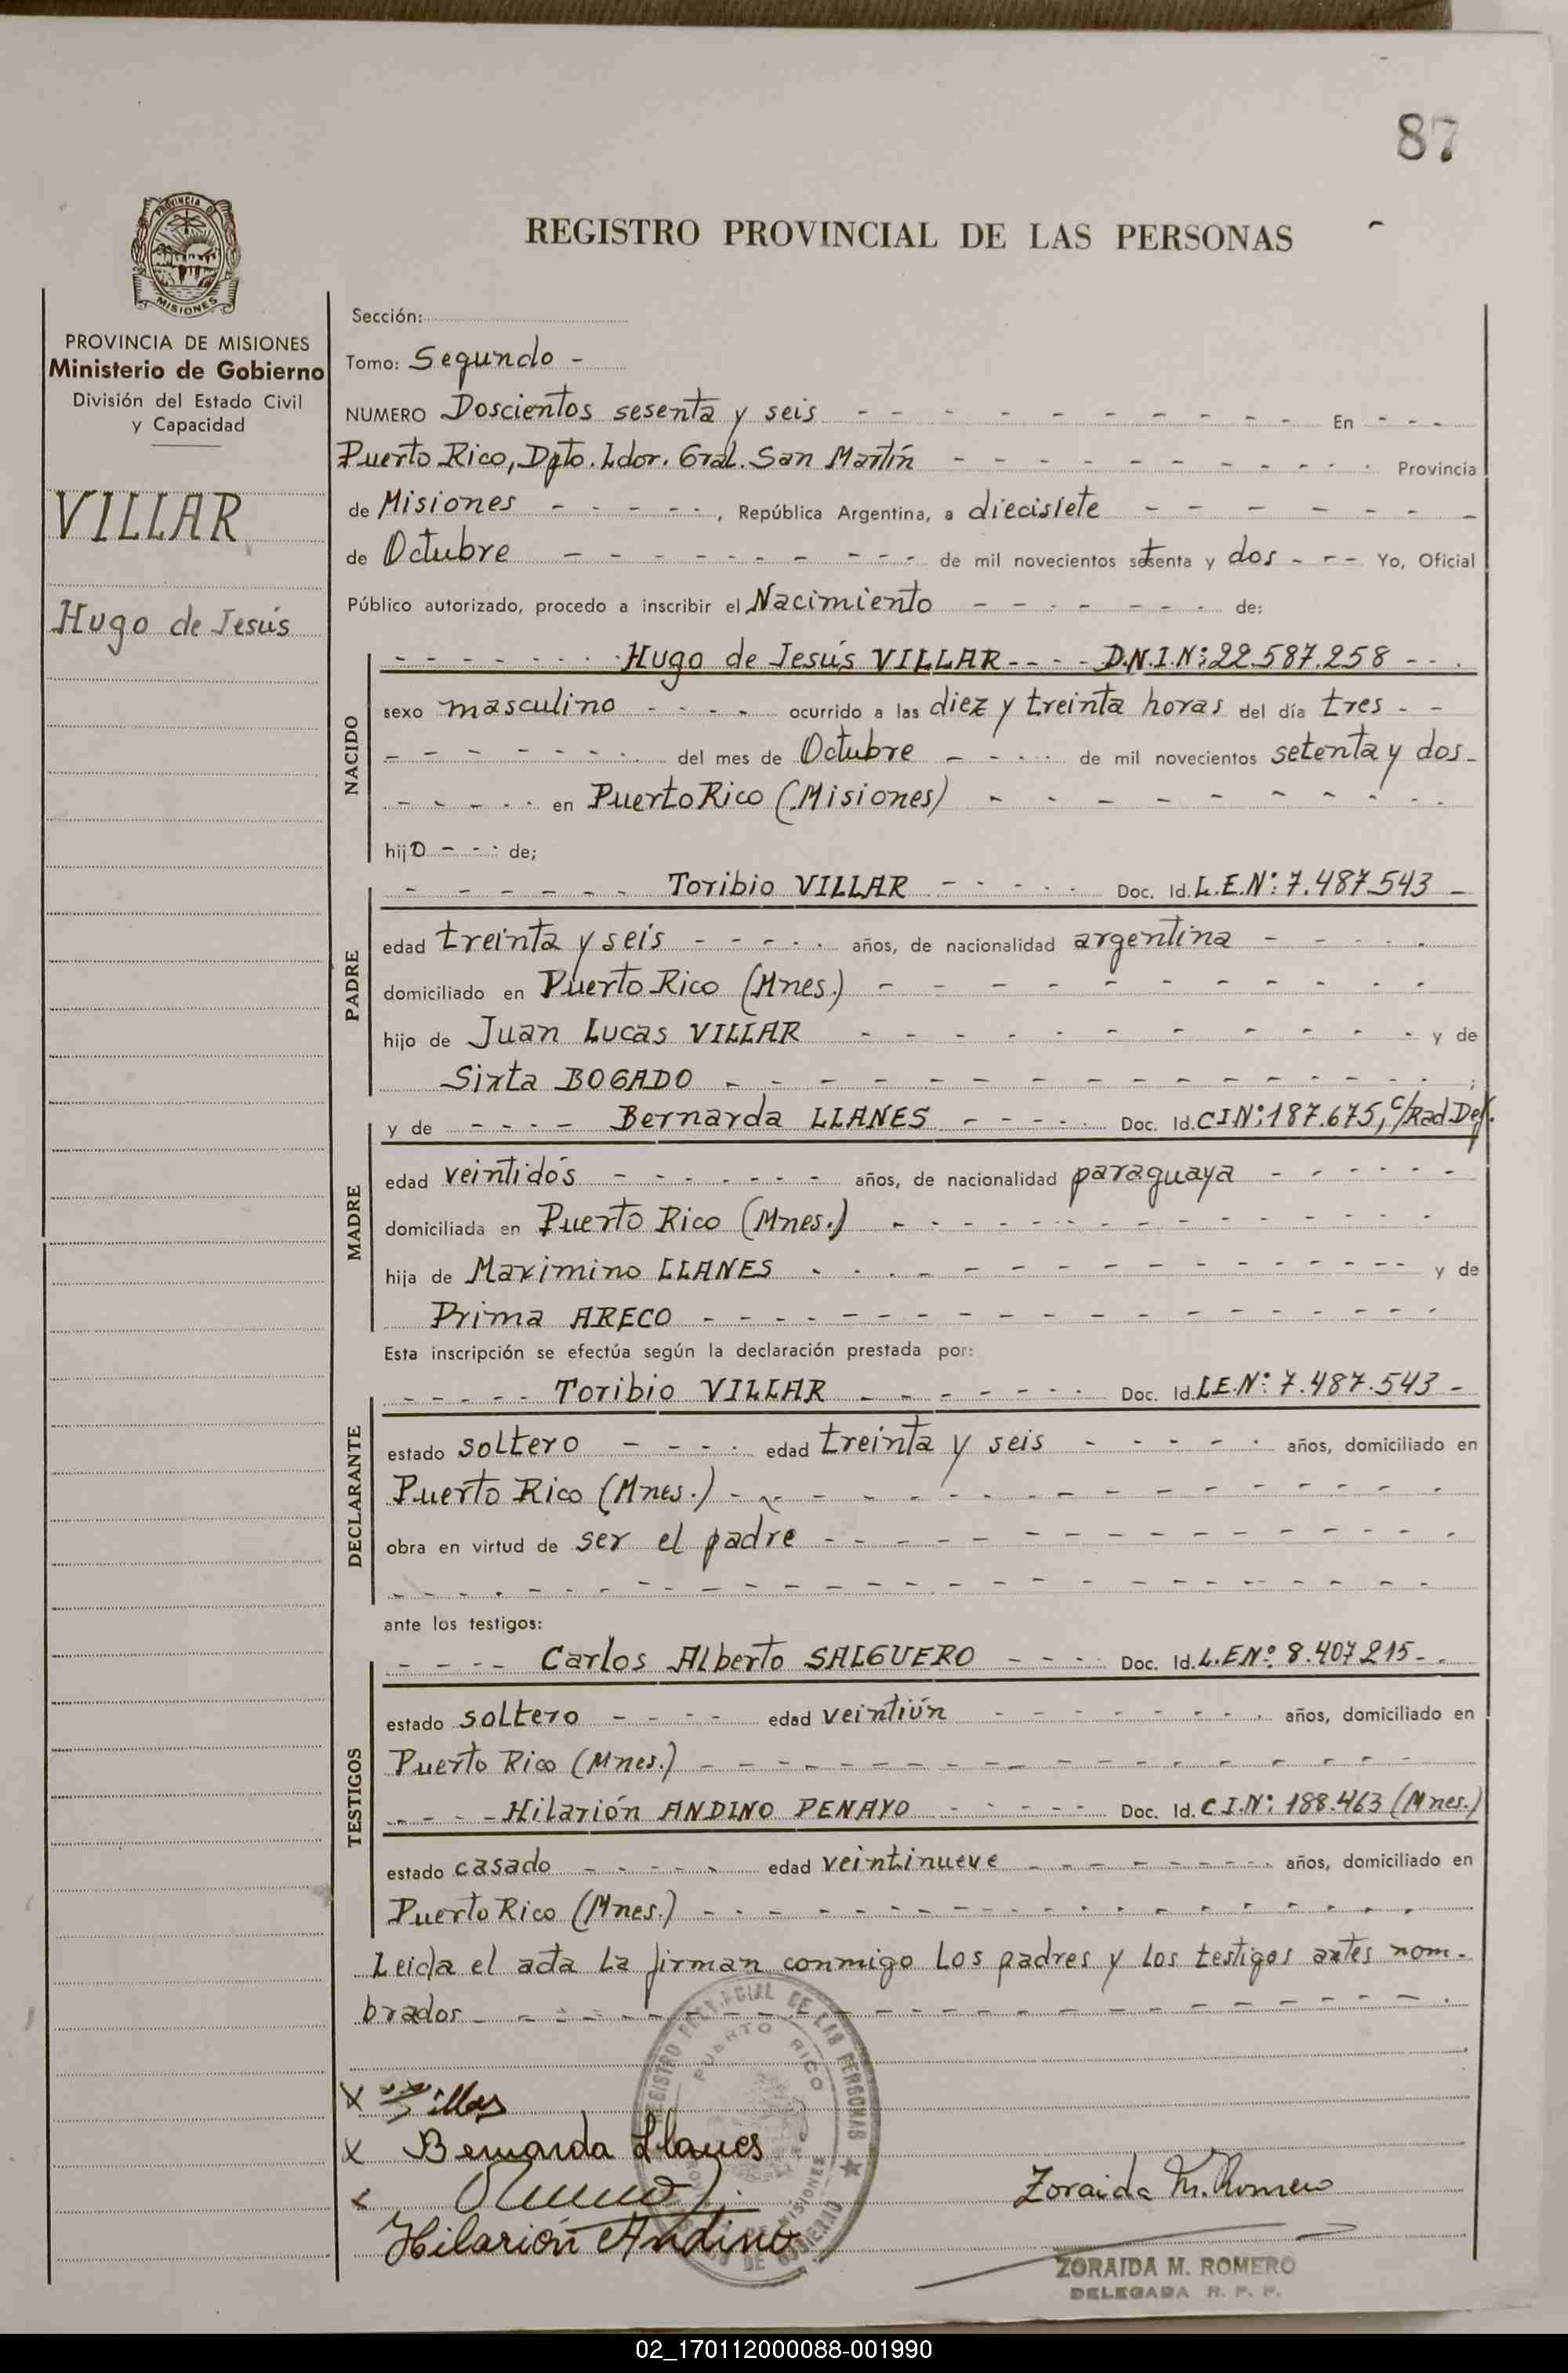 87
REGISTRO PROVINCIAL DE LAS PERSONAS
PROVINCIA DE MISIONES
PROVINCIA DE MISIONES
Ministerio de Gobierno
División del Estado Civil
y Capacidad
VILLAR
Hugo de Jesús
Sección:
Tomo: Segundo -
NUMERO Doscientos sesenta y seis - - - En - - -
Puerto Rico, Dpto. Ldor. Gral. San Martín - - - Provincia
de Misiones - - - , República Argentina, a diecisiete - - -
de Octubre - - - de mil novecientos setenta y dos - - - Yo, Oficial
Público autorizado, procedo a inscribir el Nacimiento - - - de:
NACIDO
- - - Hugo de Jesús VILLAR - - - D.N.I.N: 22.587.258 - - .
sexo masculino - - - ocurrido a las diez y treinta horas del día tres - -
- - - del mes de Octubre - - - de mil novecientos setenta y dos -
- - - en Puerto Rico (Misiones) - - -
hijo - - - de;
PADRE
- - - Toribio VILLAR - - - Doc. Id. L.E.N°: 7.487.543 -
edad treinta y seis - - - años, de nacionalidad argentina - - -
domiciliado en Puerto Rico (Mnes.) - - -
hijo de Juan Lucas VILLAR - - - y de
Sixta BOGADO - - - ;
MADRE
y de - - - Bernarda LLANES - - - Doc. Id. C.I.N°: 187.675, c/Rad.Def.
edad veintidós - - - años, de nacionalidad paraguaya - - -
domiciliada en Puerto Rico (Mnes.) - - -
hija de Maximino LLANES - - - y de
Prima ARECO - - -
Esta inscripción se efectúa según la declaración prestada por:
DECLARANTE
- - - Toribio VILLAR - - - Doc. Id. L.E.N°: 7.487.543 -
estado soltero - - - edad treinta y seis - - - años, domiciliado en
Puerto Rico (Mnes.) - - -
obra en virtud de ser el padre - - -
- - -
ante los testigos:
TESTIGOS
- - - Carlos Alberto SALGUERO - - - Doc. Id. L.E.N°: 8.407.215 - .
estado soltero - - - edad veintiún - - - años, domiciliado en
Puerto Rico (Mnes.) - - -
- - - Hilarión ANDINO PENAYO - - - Doc. Id. C.I.N°: 188.463 (Mnes.)
estado casado - - - edad veintinueve - - - años, domiciliado en
Puerto Rico (Mnes.) - - -
Leida el acta la firman conmigo los padres y los testigos antes nom-
brados - - -
REGISTRO PROVINCIAL DE LAS PERSONAS
PUERTO RICO
MISIONES
X Villar
X Bernarda Llanes
X
Hilarión Andino
Zoraida M. Romero
ZORAIDA M. ROMERO
DELEGADA R. P. P.
02_170112000088-001990